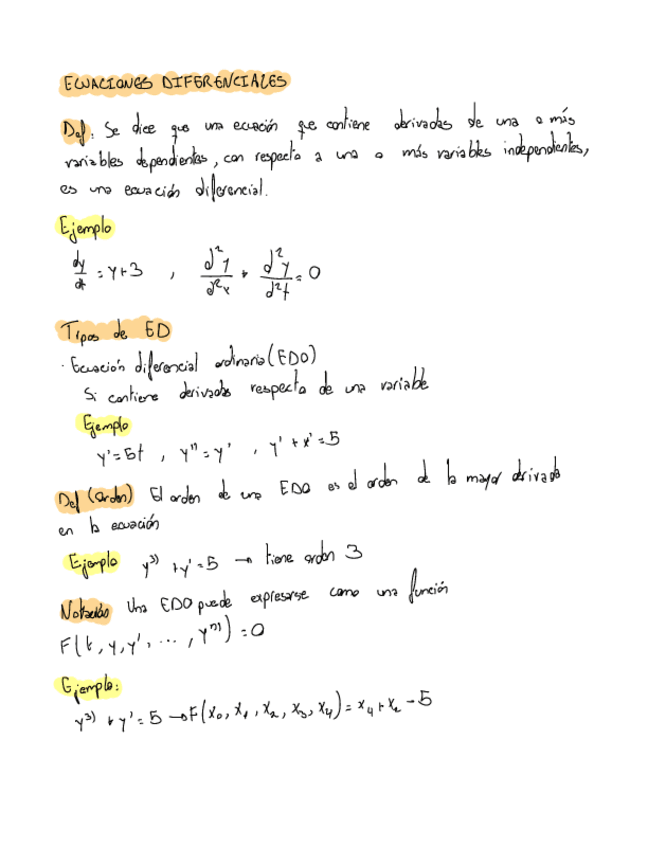 ECUACIONES DIFERENCIALES
Def: Se dice que una ecuación que contiene derivadas de una o más
variables dependientes, con respecto a una o más variables independientes,
es una ecuación diferencial.
Ejemplo
dy/dt = y+3 , d²y/d²x + d²y/d²t = 0
Tipos de ED
· Ecuación diferencial ordinaria (EDO)
Si contiene derivadas respecto de una variable
Ejemplo
y' = 5t , y'' = y' , y' + x' = 5
Def (Orden) El orden de una EDO es el orden de la mayor derivada
en la ecuación
Ejemplo y³⁾ + y' = 5 → tiene orden 3
Notación Una EDO puede expresarse como una función
F(t, y, y', ..., yⁿ⁾) = 0
Ejemplo:
y³⁾ + y' = 5 → F(x₀, x₁, x₂, x₃, x₄) = x₄ + x₂ - 5